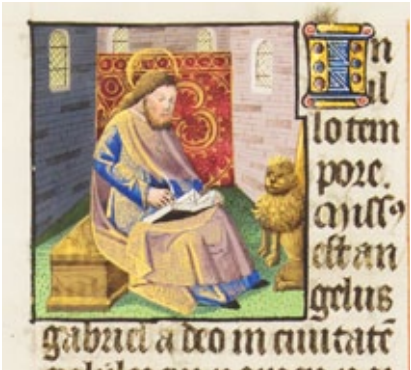 In
il
lo tem
pore.
Missꝰ
est an
gelus
gabriel a deo in ciuitatē